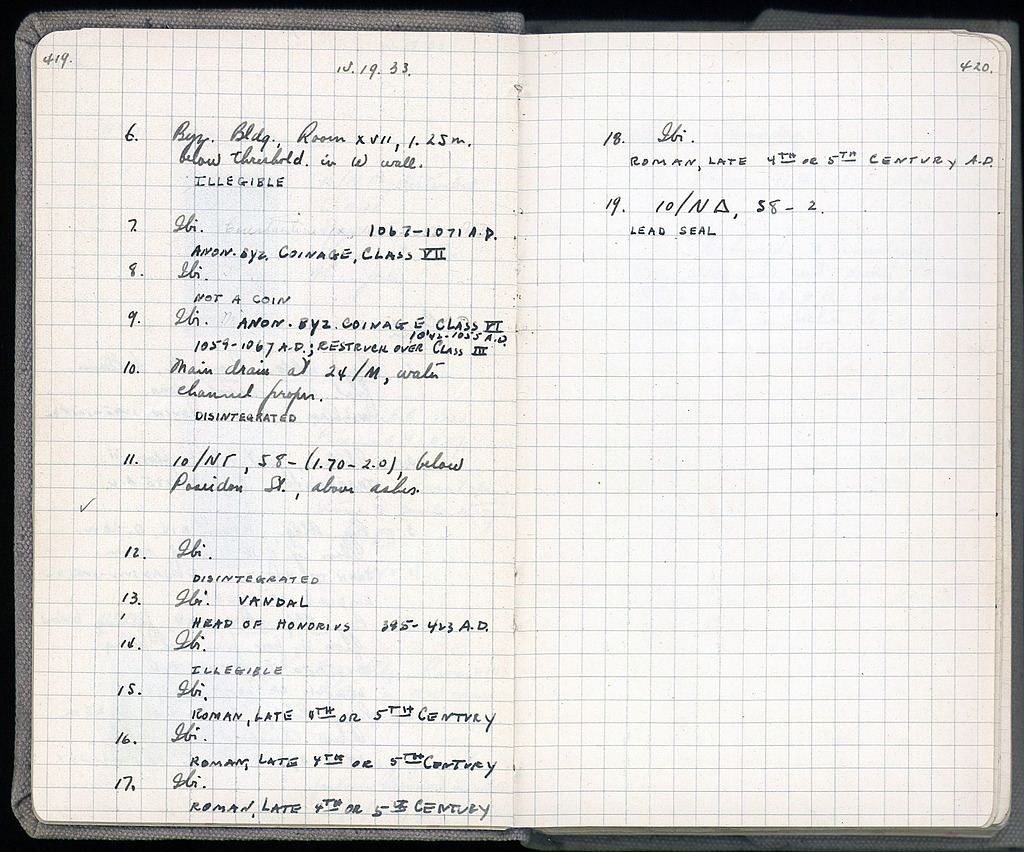 419.
19. 33.
6. Byz. Bldg., Room XVII, 1.25m.
below threshold in W wall.
ILLEGIBLE
7. Ibi. 1067-1071 A.D.
ANON. BYZ. COINAGE, CLASS VII
8. Ibi.
NOT A COIN
9. Ibi. ANON. BYZ. COINAGE CLASS VI
1042-1055 A.D.
1059-1067 A.D.; RESTRUCK OVER CLASS III
10. Main drain at 24/M, water
channel proper.
DISINTEGRATED
11. 10/NΓ, 58-(1.70-2.0), below
Poseidon St., above ashes.
✓
12. Ibi.
DISINTEGRATED
13. Ibi. VANDAL
HEAD OF HONORIUS 395-423 A.D.
14. Ibi.
ILLEGIBLE
15. Ibi.
ROMAN, LATE 4TH OR 5TH CENTURY
16. Ibi.
ROMAN, LATE 4TH OR 5TH CENTURY
17. Ibi.
ROMAN, LATE 4TH OR 5TH CENTURY
420.
18. Ibi.
ROMAN, LATE 4TH OR 5TH CENTURY A.D.
19. 10/NΔ, 58-2.
LEAD SEAL